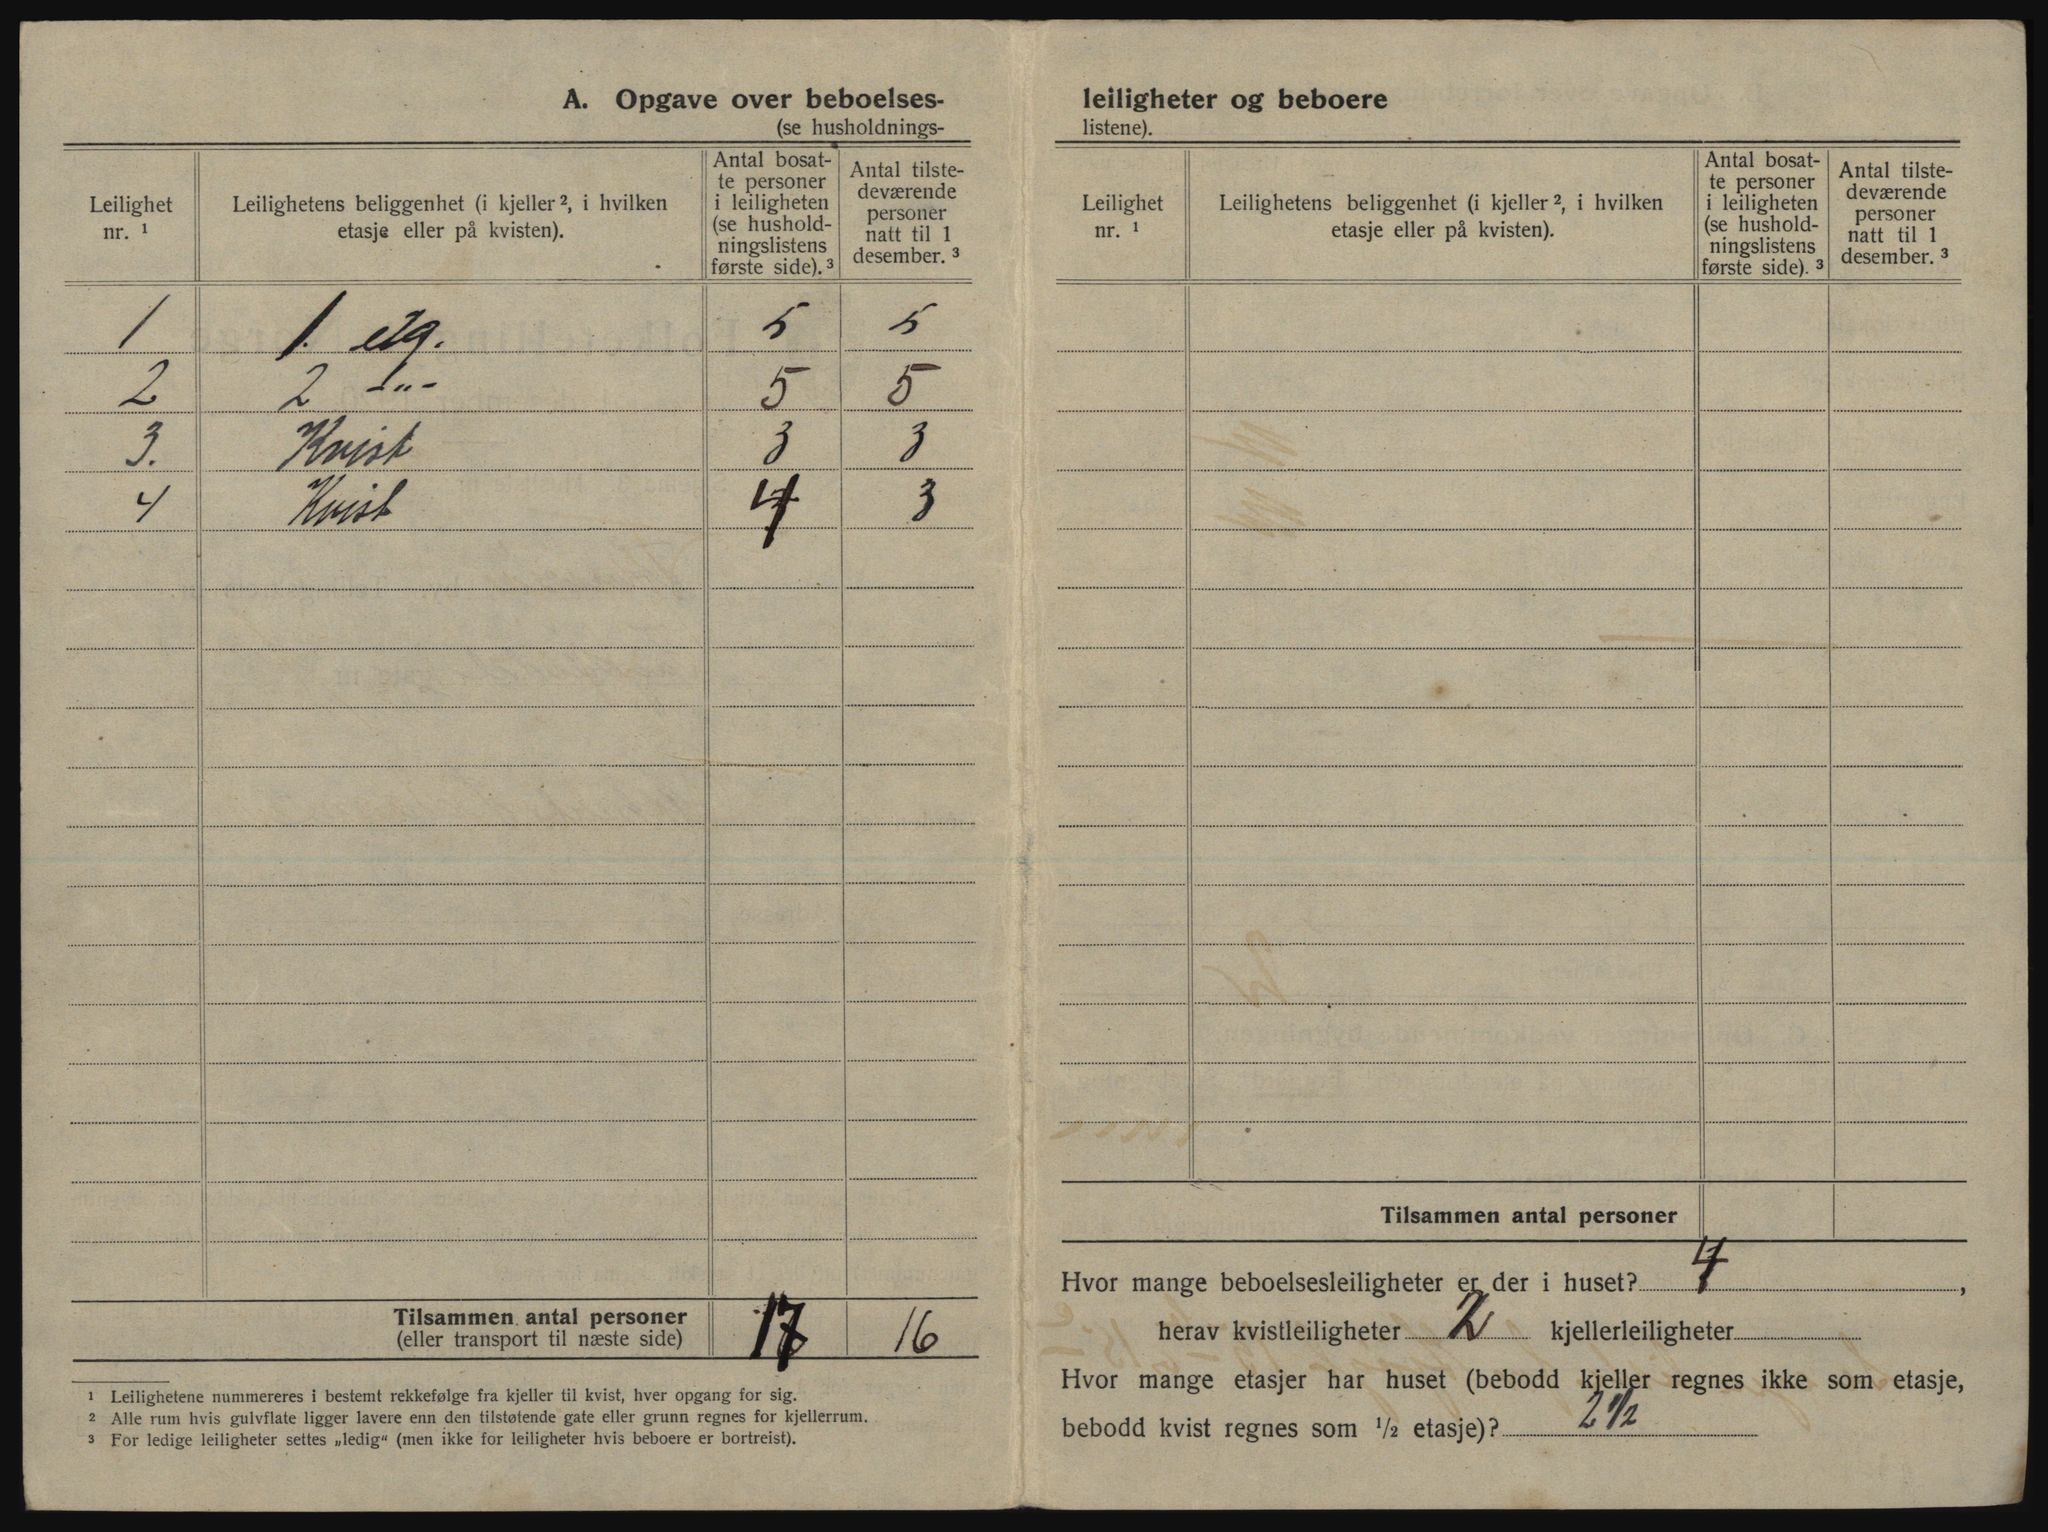 A. Opgave over beboelses-
(se husholdnings-
Leilighet nr. ¹
Leilighetens beliggenhet (i kjeller ², i hvilken
etasje eller på kvisten).
Antal bosat-
te personer
i leiligheten
(se hushold-
ningslistens
første side). ³
Antal tilste-
deværende
personer
natt til 1
desember. ³
1 1. etg. 5 5
2 2 -"- 5 5
3. Kvist 3 3
4 Kvist 4 3
Tilsammen antal personer
(eller transport til næste side) 17 16
¹ Leilighetene nummereres i bestemt rekkefølge fra kjeller til kvist, hver opgang for sig.
² Alle rum hvis gulvflate ligger lavere enn den tilstøtende gate eller grunn regnes for kjellerrum.
³ For ledige leiligheter settes „ledig“ (men ikke for leiligheter hvis beboere er bortreist).
leiligheter og beboere
listene).
Leilighet nr. ¹
Leilighetens beliggenhet (i kjeller ², i hvilken
etasje eller på kvisten).
Antal bosat-
te personer
i leiligheten
(se hushold-
ningslistens
første side). ³
Antal tilste-
deværende
personer
natt til 1
desember. ³
Tilsammen antal personer
Hvor mange beboelsesleiligheter er der i huset? 4,
herav kvistleiligheter 2 kjellerleiligheter
Hvor mange etasjer har huset (bebodd kjeller regnes ikke som etasje,
bebodd kvist regnes som ½ etasje)? 2 ½